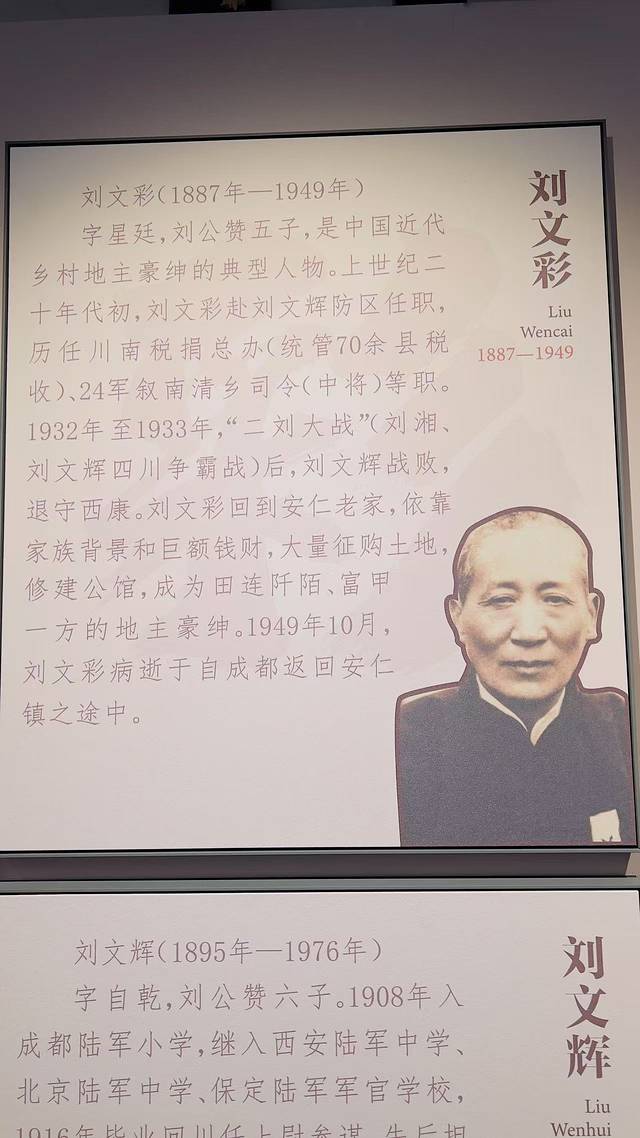 刘文彩(1887年—1949年)
字星廷,刘公赞五子,是中国近代
乡村地主豪绅的典型人物。上世纪二
十年代初,刘文彩赴刘文辉防区任职,
历任川南税捐总办(统管70余县税
收)、24军叙南清乡司令(中将)等职。
1932年至1933年,“二刘大战”(刘湘、
刘文辉四川争霸战)后,刘文辉战败,
退守西康。刘文彩回到安仁老家,依靠
家族背景和巨额钱财,大量征购土地,
修建公馆,成为田连阡陌、富甲
一方的地主豪绅。1949年10月,
刘文彩病逝于自成都返回安仁
镇之途中。
刘文彩
Liu
Wencai
1887—1949
刘文辉(1895年—1976年)
字自乾,刘公赞六子。1908年入
成都陆军小学,继入西安陆军中学、
北京陆军中学、保定陆军军官学校,
1916年毕业回川任上尉参谋,先后担
刘文辉
Liu
Wenhui